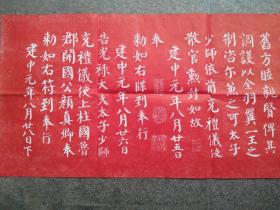 舊方睦親賢俾其
調護以全羽翼一王之
制咨尔兼之可太子
少師依前充禮儀使
散官勳封如故
建中元年八月廿五日
奉
敕如右牒到奉行
建中元年八月廿六日
告光祿大夫太子少師
充禮儀使上柱國魯
郡開國公顏真卿奉
敕如右符到奉行
建中元年八月廿八日下